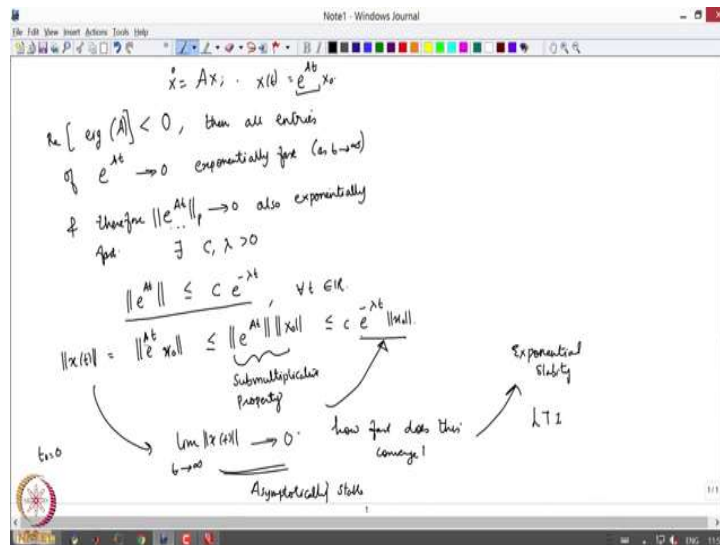 Note1 - Windows Journal
File Edit View Insert Actions Tools Help
ẋ = Ax; x(t) = e^{At} x₀
Re [eig (A)] < 0, then all entries
of e^{At} → 0 exponentially fast (as t→∞)
& therefore ||e^{At}||_p → 0 also exponentially
fast. ∃ c, λ > 0
||e^{At}|| ≤ c e^{-λt}, ∀ t ∈ ℝ.
||x(t)|| = ||e^{At} x₀|| ≤ ||e^{At}|| ||x₀|| ≤ c e^{-λt} ||x₀||.
Submultiplicative
Property
Exponential
Stability
LTI
t₀=0
lim ||x(t)|| → 0.
t→∞
how fast does this
converge!
Asymptotically stable
1
1/1
NPTEL
ENG